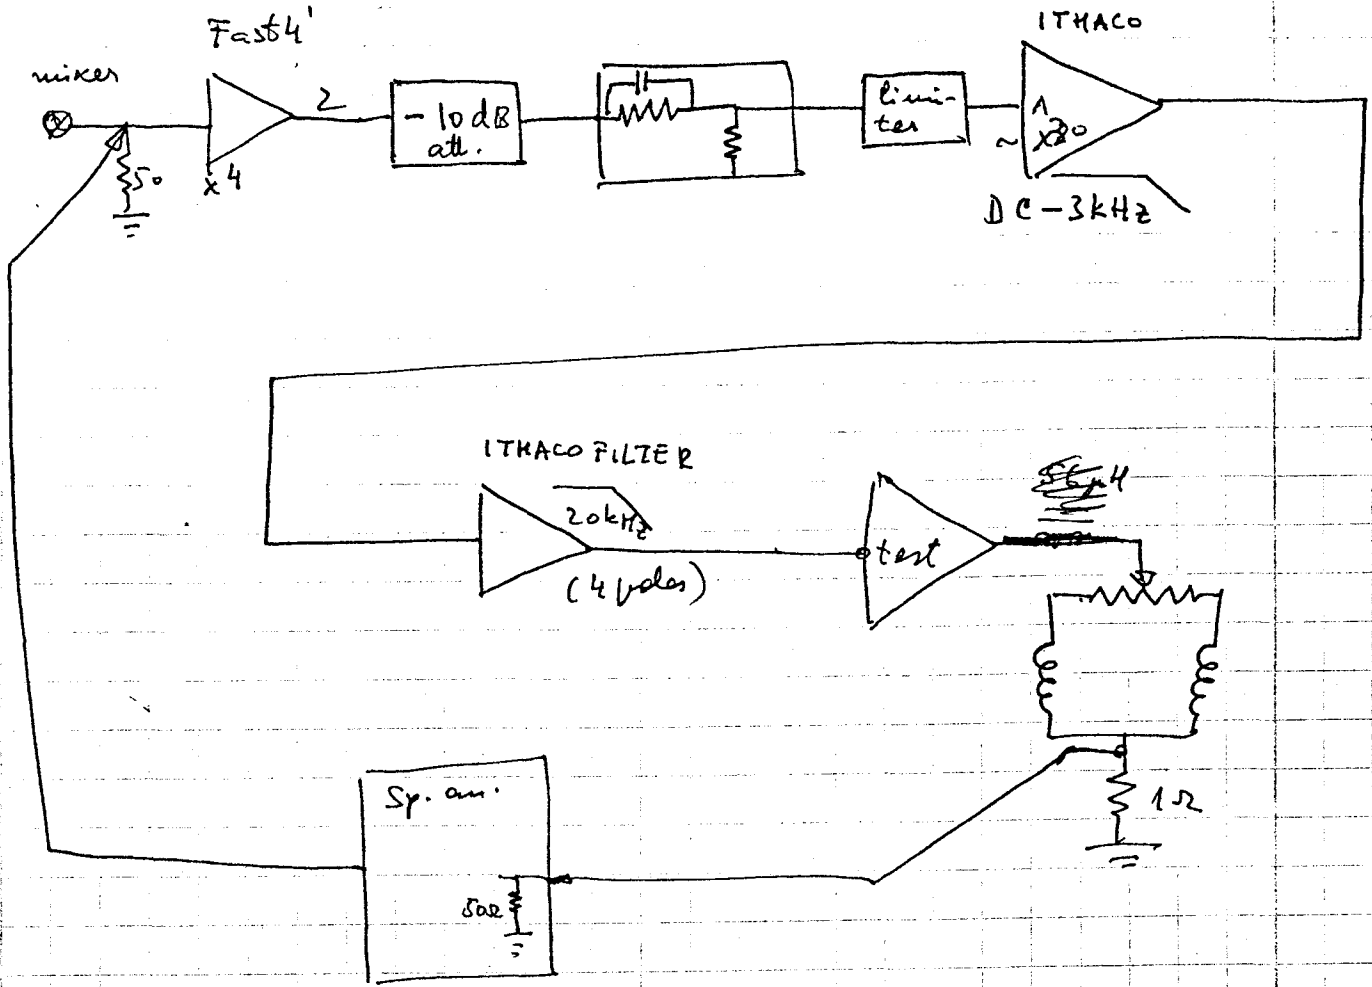 Fast4'
ITHACO
mixer
2
- 10 dB
att.
limi-
ter
50
x 4
~
DC - 3 kHz
ITHACO FILTER
20 kHz
(4 poles)
test
Sp. an.
50Ω
1Ω